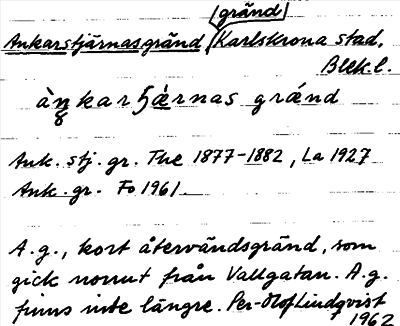 (gränd)
Ankarstjärnasgränd Karlskrona stad,
Blek.l.
àŋkarʃɧæ̀rnas gránd
Ank. stj. gr. The 1877-1882, La 1927
Ank. gr. Fo 1961.
A.g., kort återvändsgränd, som
gick norrut från Vallgatan. A.g.
finns inte längre. Per-Olof Lindqvist
1962